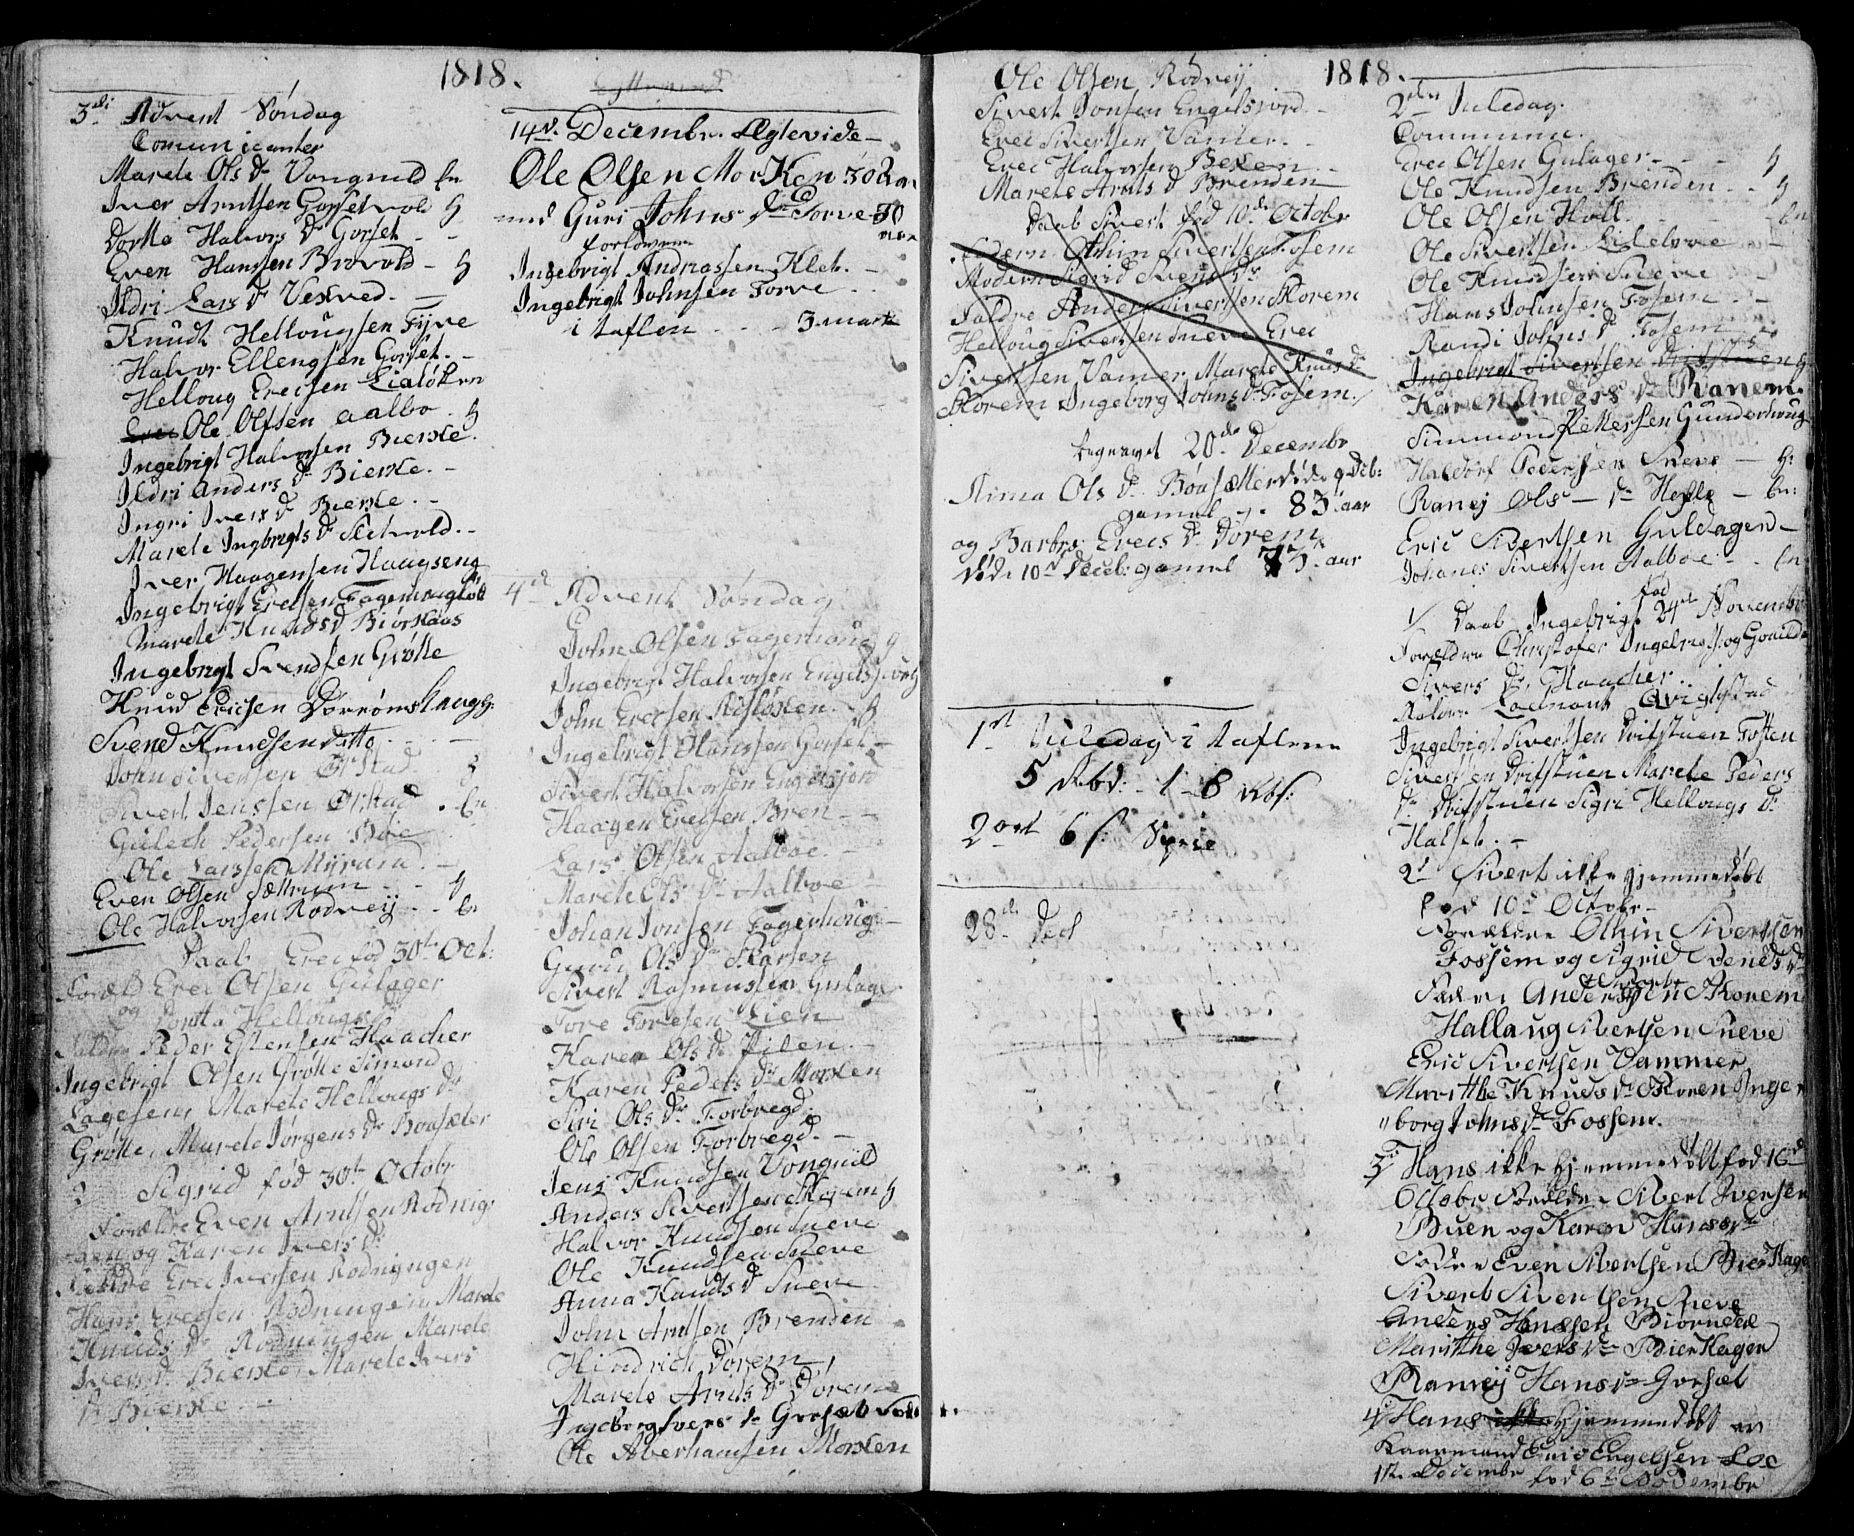 1818.
3di Advent Søndag
Comunicanter
Marete Ols Dr Vongnild En
Iver Arntsen Gorsetvold H
Dorthe Halvors Dr Gorset
Even Hanssen Brovold - H
Ildri Lars Dr Vexved.
Knudt Hellougsen Fyve
Halvor Ellengsen Gorset.
Helloug Erecsen Lialøken
Ole Olfsen Aalbo. H
Ingebrigt Halvorsen Bierke.
Ildri Anders Dr Bierke.
Ingri Ivers Dr Bierke.
Marete Ingbrigts Dr Sletvold.
Iver Haagensen Haagseng
Ingebrigt Erecsen Fagerhaug
Marete Knuds Dr Biørkaas
Ingebrigt Svendsen Grøtte
Knud Ericsen Dorrømskaugh.
Svend Knudsen ditto
John Siversen Ørstad
Sivert Jenssen Ørstad. En
Gulech Pedersen Bøe
Ole Larssen Myrmo
Even Olsen Sættrum H
Ole Halvorsen Rødveÿ.
Daab Erec fød 30te Oct:
Foræld Erec Olsen Gulager
og Dorthe Hellougs Dr
Faddre Peder Estensen Haacher
Ingebrigt Olsen Grøtte Simond
Lagesen, Marete Hellougs Dr
Grøtte, Marete Jørgens Dr Boesæter
2 Sigrid fød 30te Octobr
Forældre Even Arntsen Rødnig
en og Karen Ivers Dr
Faddre Erec Iversen Rødningen
Hans Erecsen Rødningen, Marete
Knuds Dr Rødningen Marete
Ivers Dr Bierke, Marete Ivers
Dr Bierke.
14de Decembr. Ægtevide
Ole Olsen Morken 30 aar
med Guri Johns Dr Torve 30
aar
forlovere
Ingebrigt Andriassen Klet.
Ingebrigt Johnsen Torve
i taflen 3. mark
4de Advent Søndag
John Olsen Fagerhoug H
Ingebrigt Halvorsen Engelsjord H
John Erecsen Risløkken. H
Ingebrigt Hanssen Gorset
Sivert Halvorsen Engelsjord
Haagen Erecsen Bren
Lars Olsen Aalboe.
Marete Ols Dr Aalboe
Johan Jonsen Fagerhoug
Guru Ols Dr Skarsem
Sivert Rasmussen Gulager
Tore Toresen Lien
Karen Ols Dr Pilen.
Karen Peders Dr Morken
Siri Ols Dr Forbregd.
Ole Olsen Forbregd.
Jens Knudsen Vongnild
Anders Sivertsen Skorem H
Halvor Knudsen Sneve
Ole Knudsen Sneve
Anna Knuds Dr Sneve
John Arntsen Brenden
Hindrich Dorem
Marete Arnts Dr Dorem
Ingeborg Ivers Dr Gorsæt
Ole Aberhamsen Morken
1818.
Ole Olsen Rødveÿ
Sivert Jonsen Engelsjord
Erec Sivertsen Vamer.
Erec Halvorsen Bexen
Marete Arnts Dr Brenden
Daab Sivert fød 10de Octobr
Othim Sivertsen Fosem
Modern Sigrid Svens Dr
Faldre Anders Sivertsen Skorem
Helloug Sivertsen Sneve Erec
Sivertsen Vamer, Marete Knuds Dr
Skorem Ingeborg Johns Dr Fosem.
Begravet 20de Decembr
Anna Ols Dr Boesætter døde 9 Deb:
gamel 83. aar
og Barbro Erecs Dr Dorem
døde 10de Deceb: gamel 73. aar
1st Juledag i taflene
5 Rbd: 1 - 8 Rbs:
2 ort 6 s: Specie
28de Ded
2den Juledag.
Communic.
Erec Olsen Gulager H
Ole Knudsen Brenden H
Ole Olsen Holl. En
Ole Sivertsen Lilleboe
Ole Knudsen Sneve
Hans Johnsen Fosem
Randi Johns Dr Fosem
Ingebrigt Sivertsen Driftstuen H
Karen Anders Dr Ranem.
Simmond Pettersen Gunderhoug
Haldorf Pedersen Sneve H
Raneÿ Ols Dr Hefle En
Eric Sivertsen Guldagen
Johanes Sivertsen Aalboe. En
fød
1/ Daab Ingebrigt 24de Novembr
Forældre Christofer Ingebrigts. og Gunild
Sivers Dr Haacher.
Ingebrigt Sivertsen Drifstuen Fosten
Sivertsen Drifstuen Marete Peders
Dr Drifstuen Sigri Hellougs Dr
Halset.
2d Sivert ikke hjemmedøbt
fød 10d Octobr
Forældre Othin Sivertsen
Fossem og Sigrid Svends Dr
Faddere Anders Sivertsen Skorem
Hallaug Sivertsen Sneve
Eric Sivertsen Vammer
Marithe Knuds Dr Skoren Inge
borg Johns Dr Fossem.
3d Hans ikke hjemmedøbt fød 16d
Octobr Forældre Sivert Iversen
Buen og Karen Hans Dr
Faddre Even Sivertsen Bierkage
Sivert Sivertsen Sneve
Anders Hanssen Biørndal
Marithe Ivers Dr BierKagen
Ranneÿ Hans Dr Gorsæt
4d Hans ikke hjemmedøbt
Eric Engelsen Loe
1te Decembr fød 6te Novembr